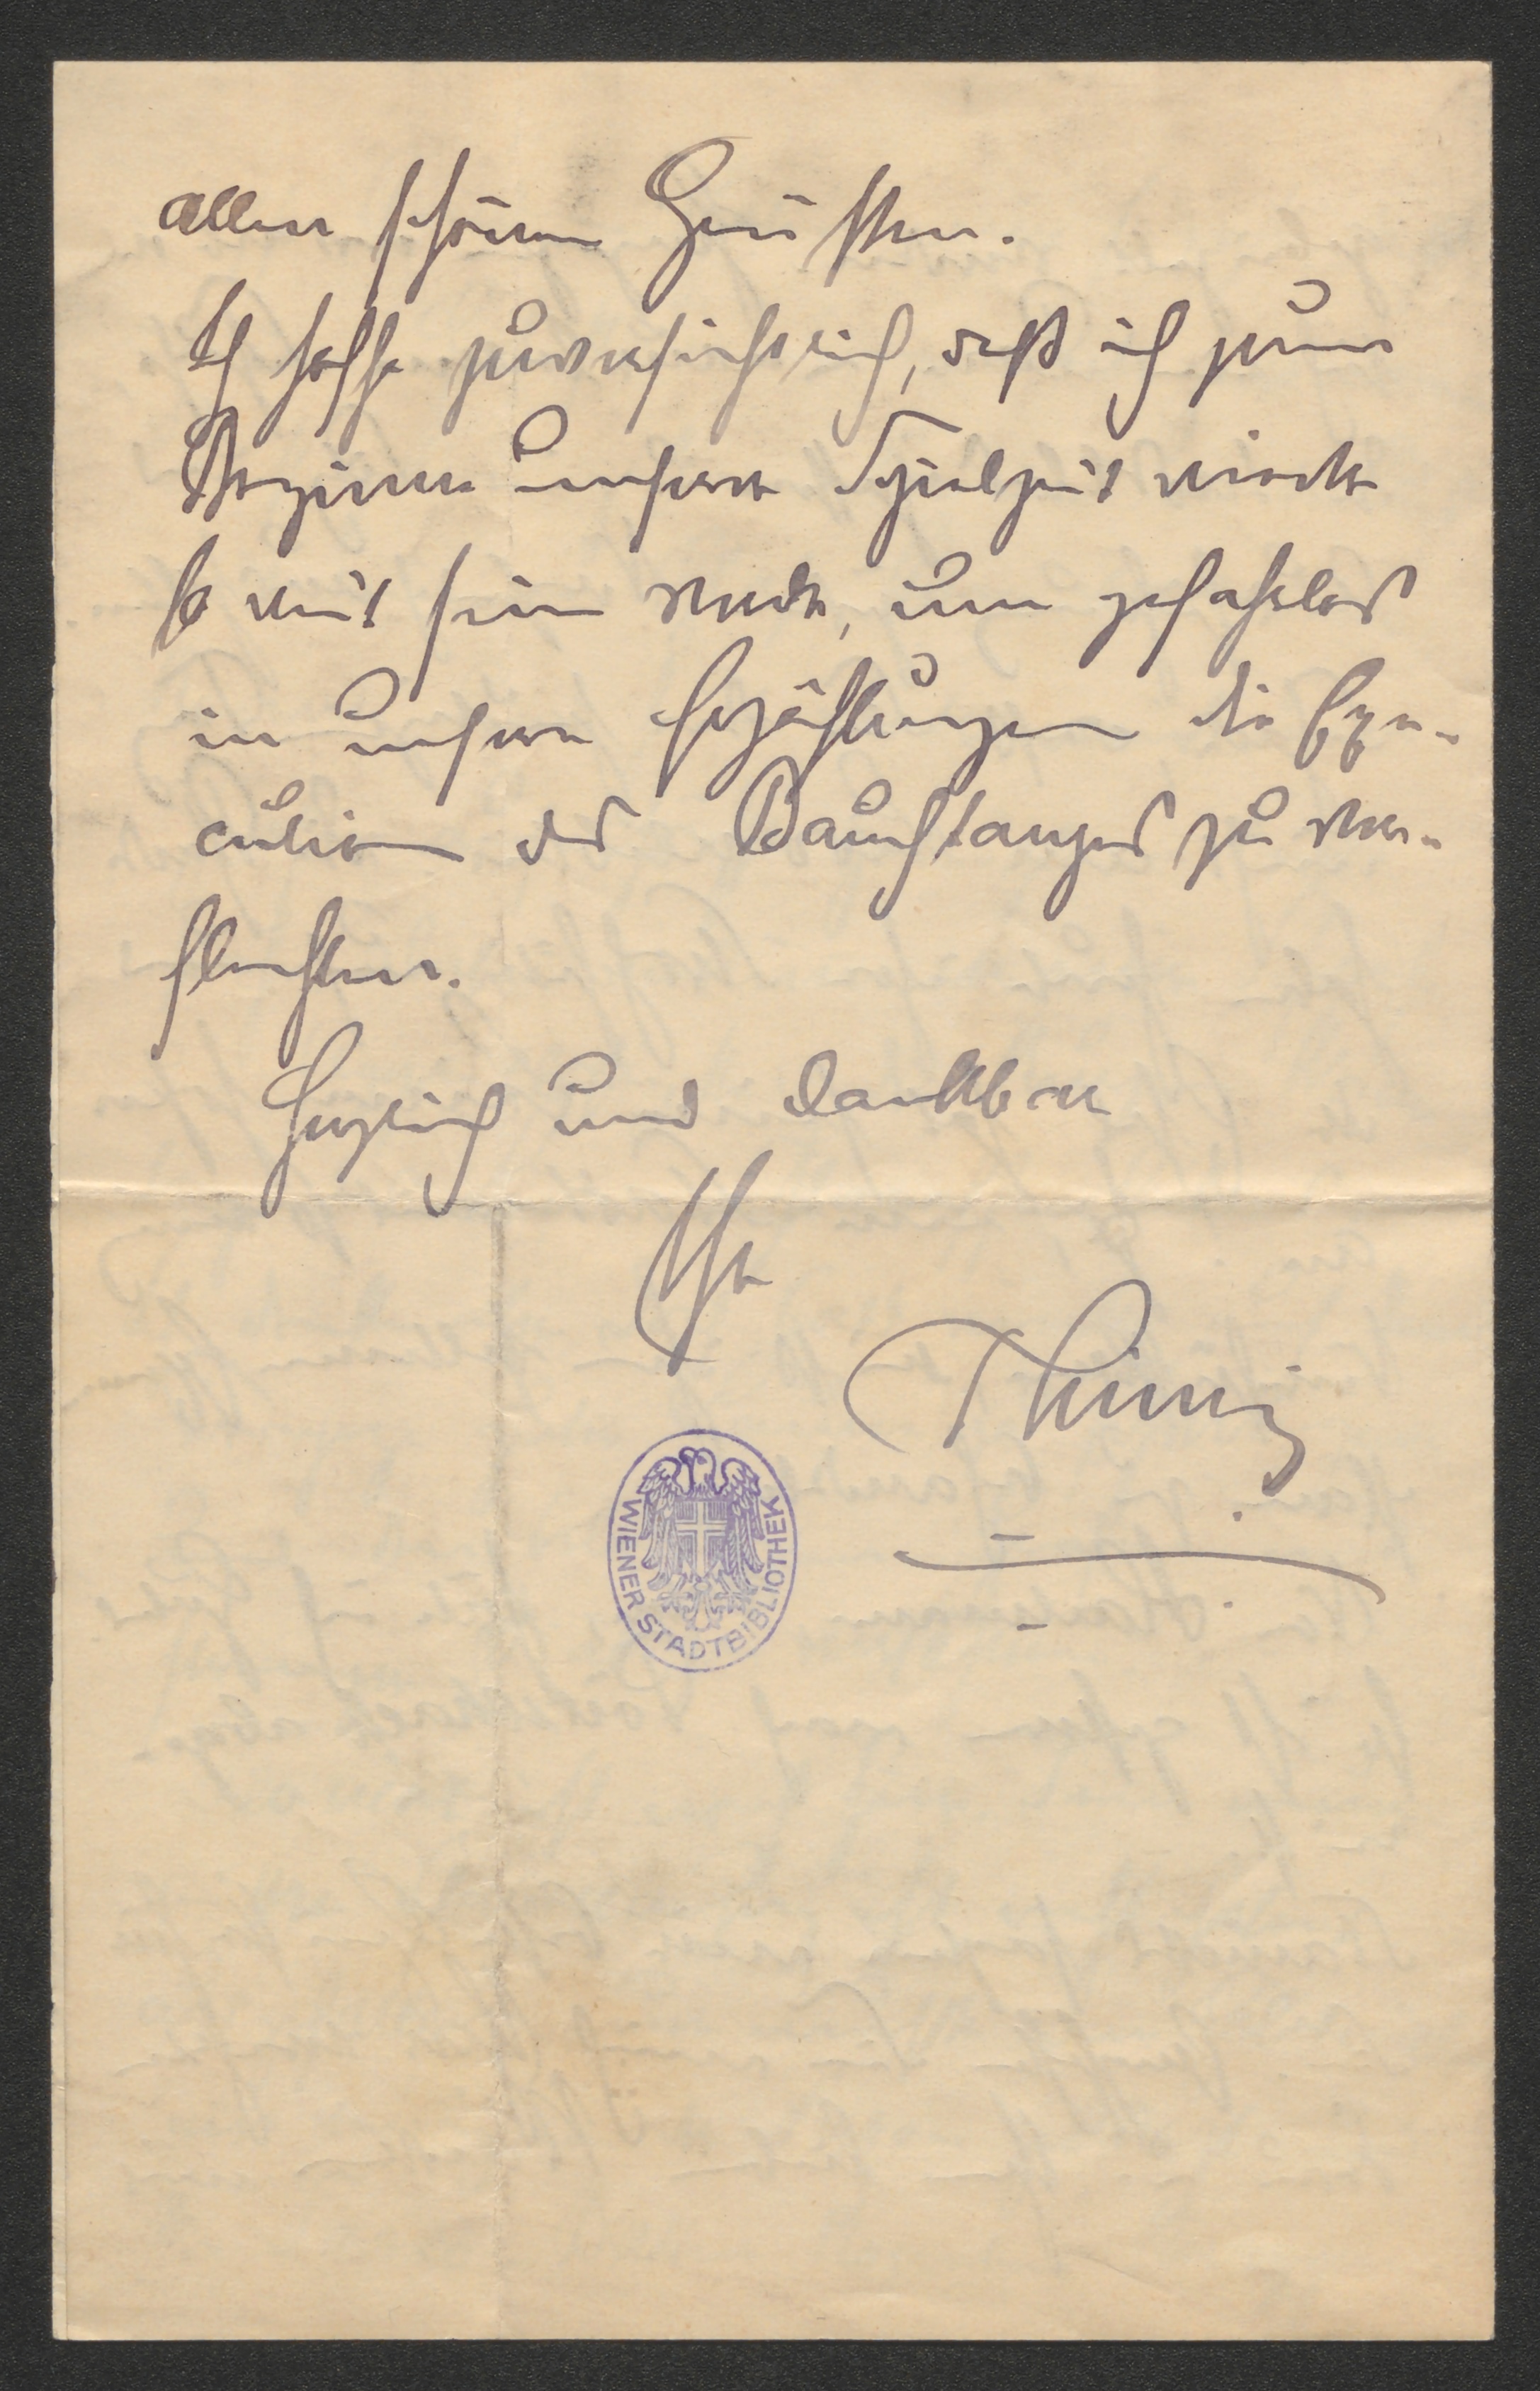 allen schönen Geistern.
Ich hoffe zuversichtlich, daß ich zum
Beginne unserer Spielzeit wieder
so weit sein werde, um gefahrlos
in unsere Erzählungen die Exe-
cution des Bauchtanzes zu ver-
flechten.
Herzlich und dankbar
Ihr
Thimig
WIENER STADTBIBLIOTHEK